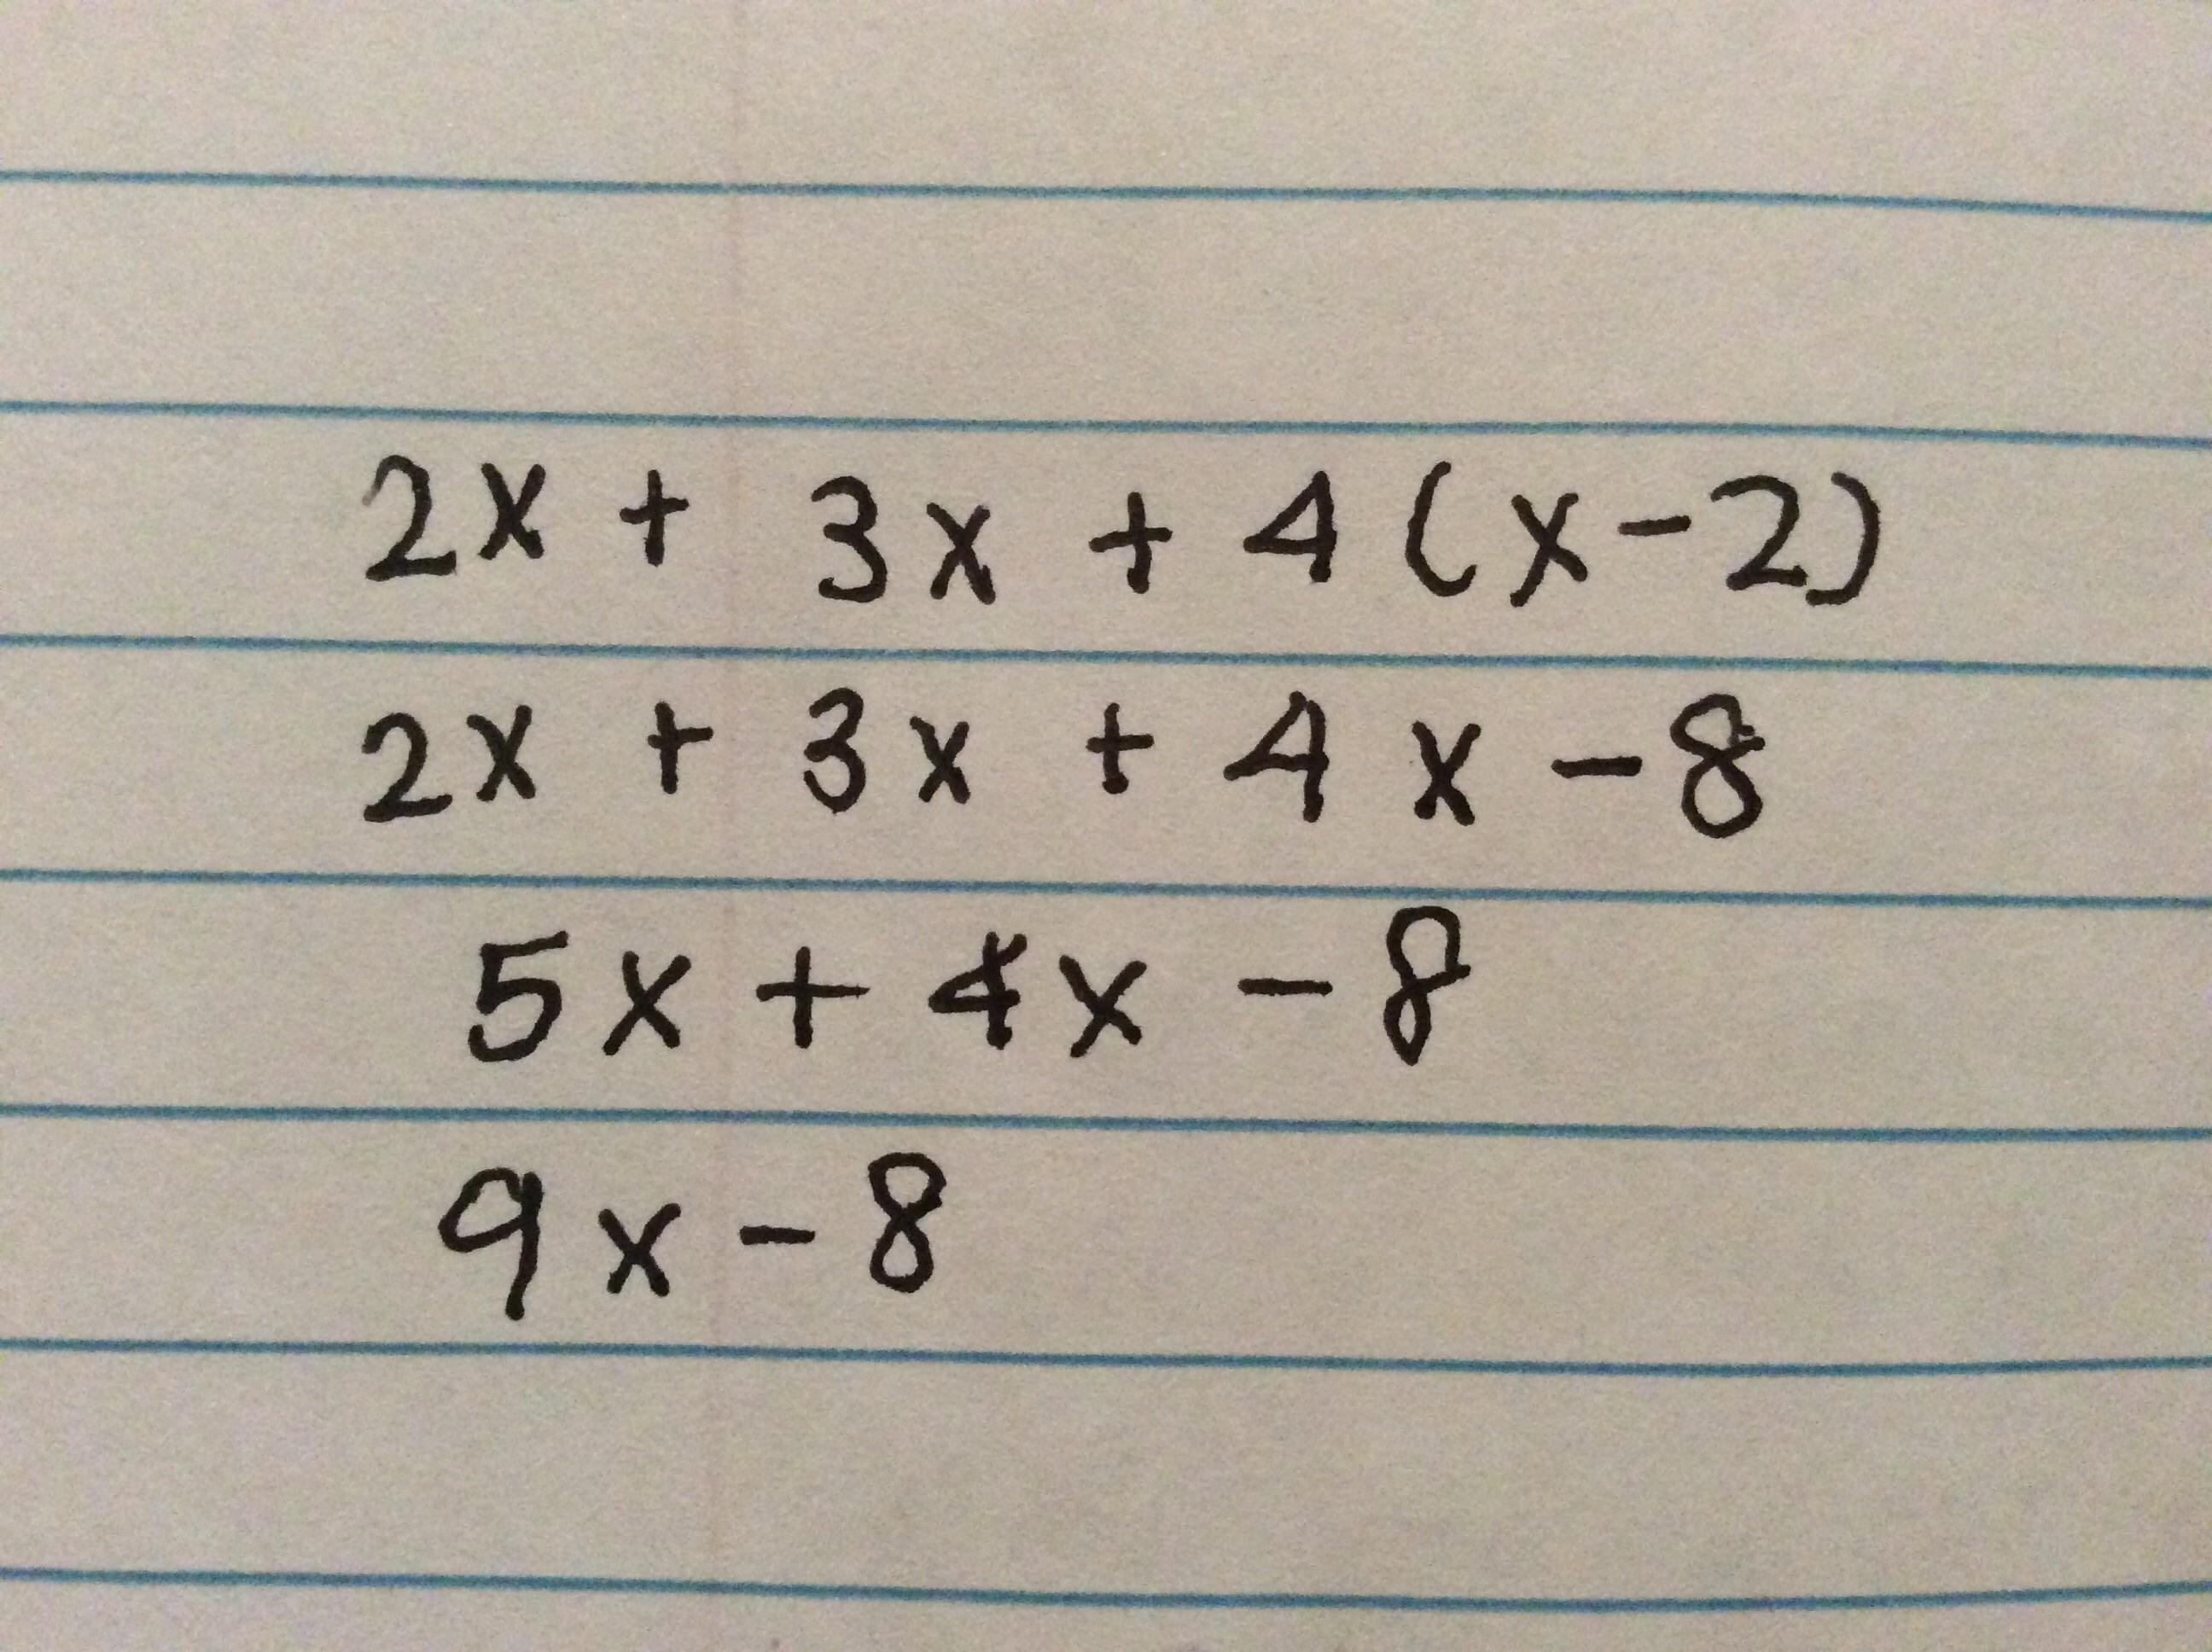 2x + 3x + 4(x-2)
2x + 3x + 4x - 8
5x + 4x - 8
9x - 8